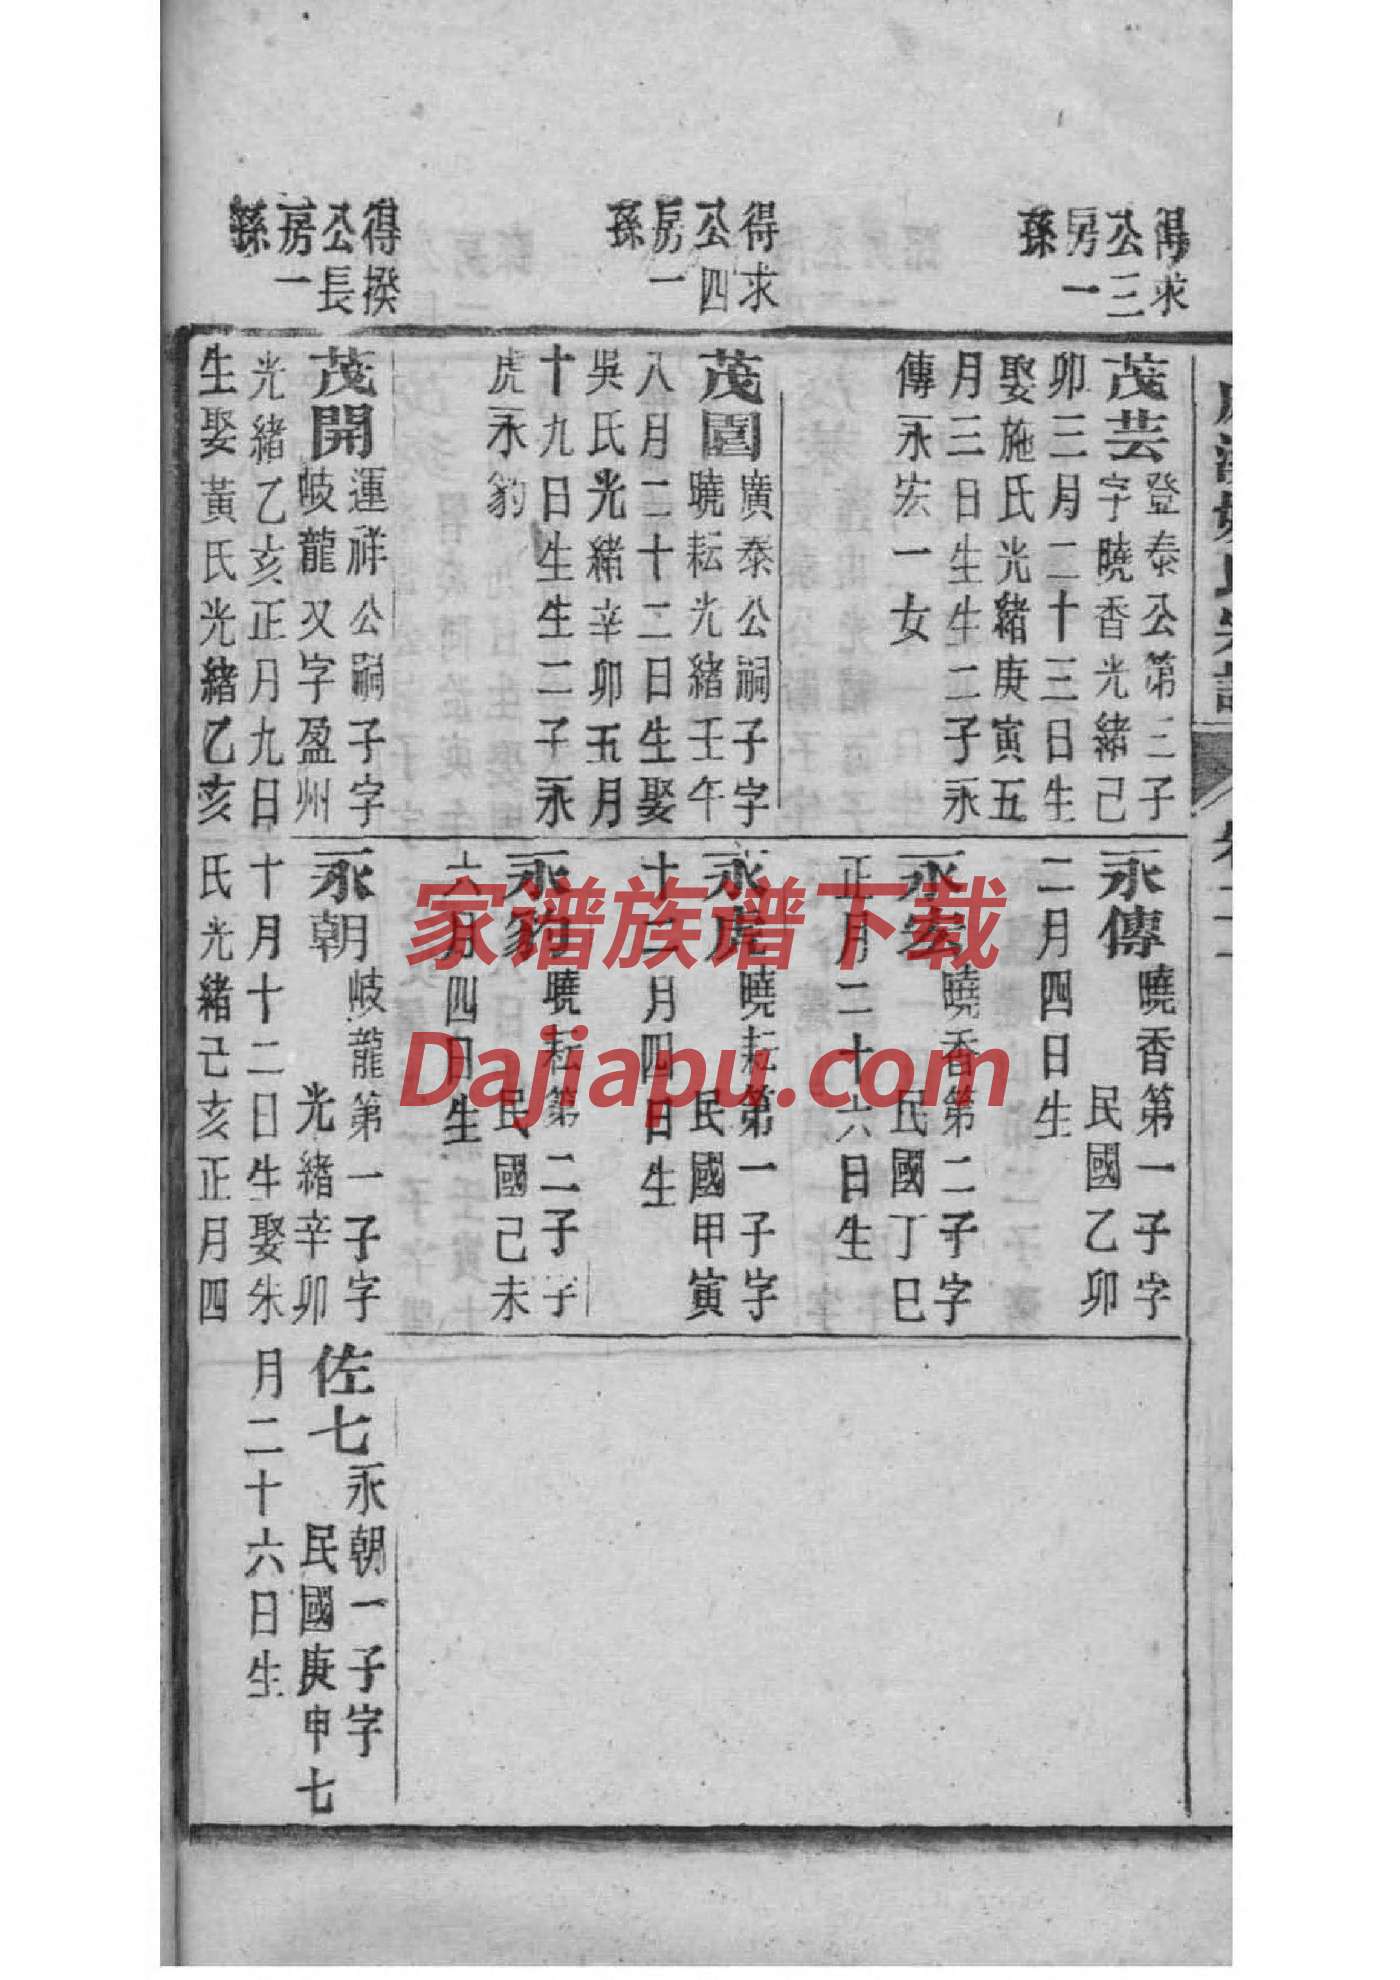 得求
公三
房一
孫
得求
公四
房一
孫
得揆
公長
房一
孫
茂芸
登泰公第三子
字曉香光緒己
卯三月二十三日生
娶施氏光緒庚寅五
月三日生生二子永
傳永宏一女
茂園
廣泰公嗣子字
曉耘光緒壬午
八月二十二日生娶
吳氏光緒辛卯五月
十九日生生二子永
虎永豹
茂開
運祥公嗣子字
岐龍又字盈州
光緒乙亥正月九日
生娶黃氏光緒乙亥
永傳
曉香第一子字
民國乙卯
二月四日生
永宏
曉香第二子字
民國丁巳
正月二十六日生
永虎
曉耘第一子字
民國甲寅
十二月四日生
永豹
曉耘第二子字
民國己未
六月四日生
永朝
岐龍第一子字
光緒辛卯
十月十二日生娶朱
氏光緒己亥正月四
佐七
永朝一子字
民國庚申七
月二十六日生
家谱族谱下载
Dajiapu.com